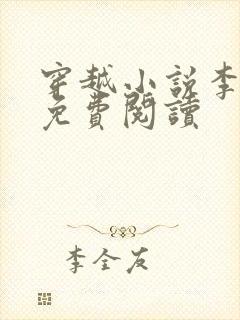 穿越小说李
免費閱讀
李全友